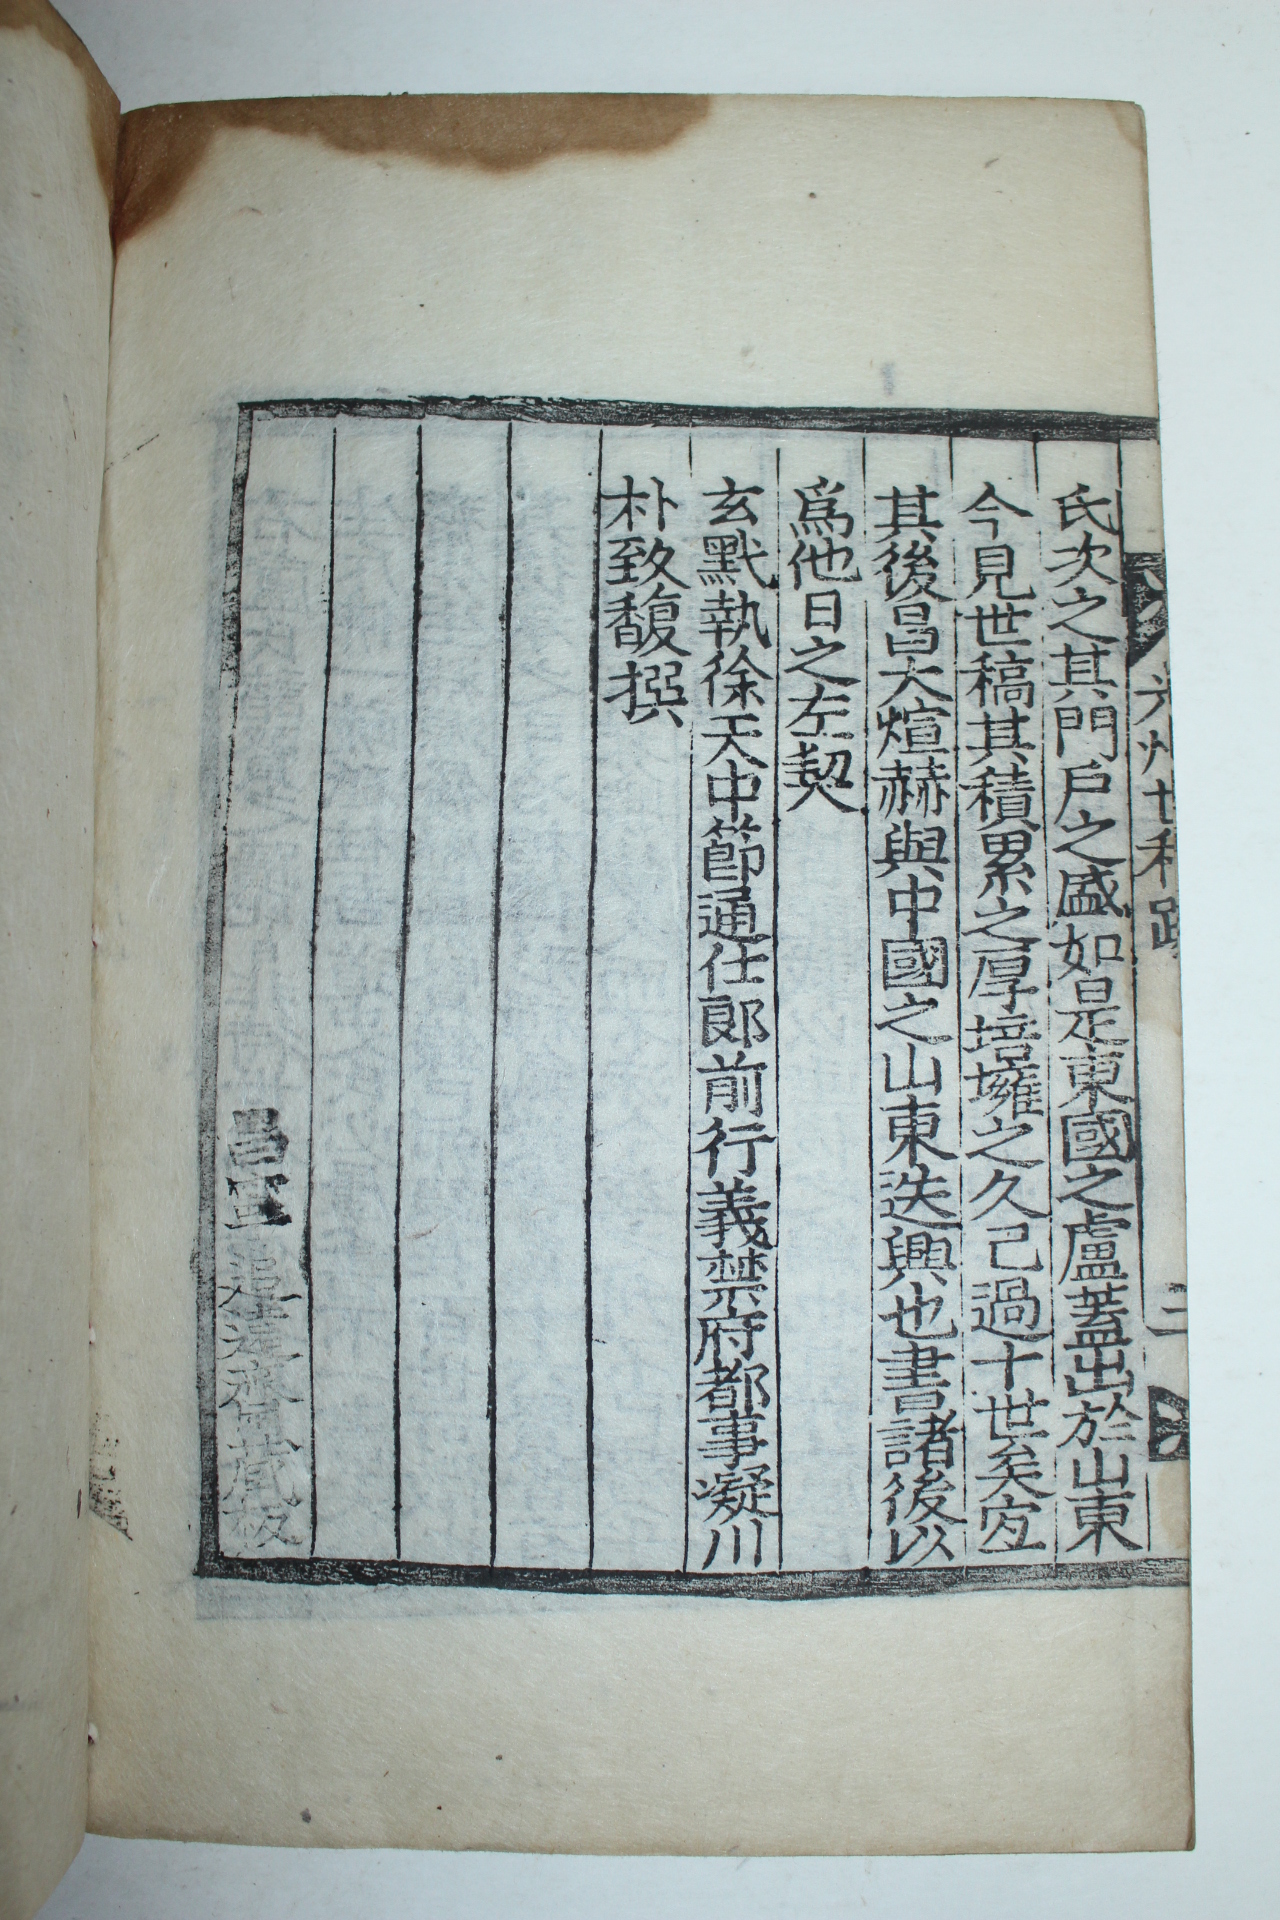 光州世稿跋 二
氏次之其門戶之盛如是東國之盧蓋出於山東
今見世稿其積累之厚培壅之久已過十世矣宐
其後昌大煊赫與中國之山東迭興也書諸後以
爲他日之左契
玄黓執徐天中節通仕郞前行義禁府都事凝川
朴致馥撰
昌平追遠齋藏板